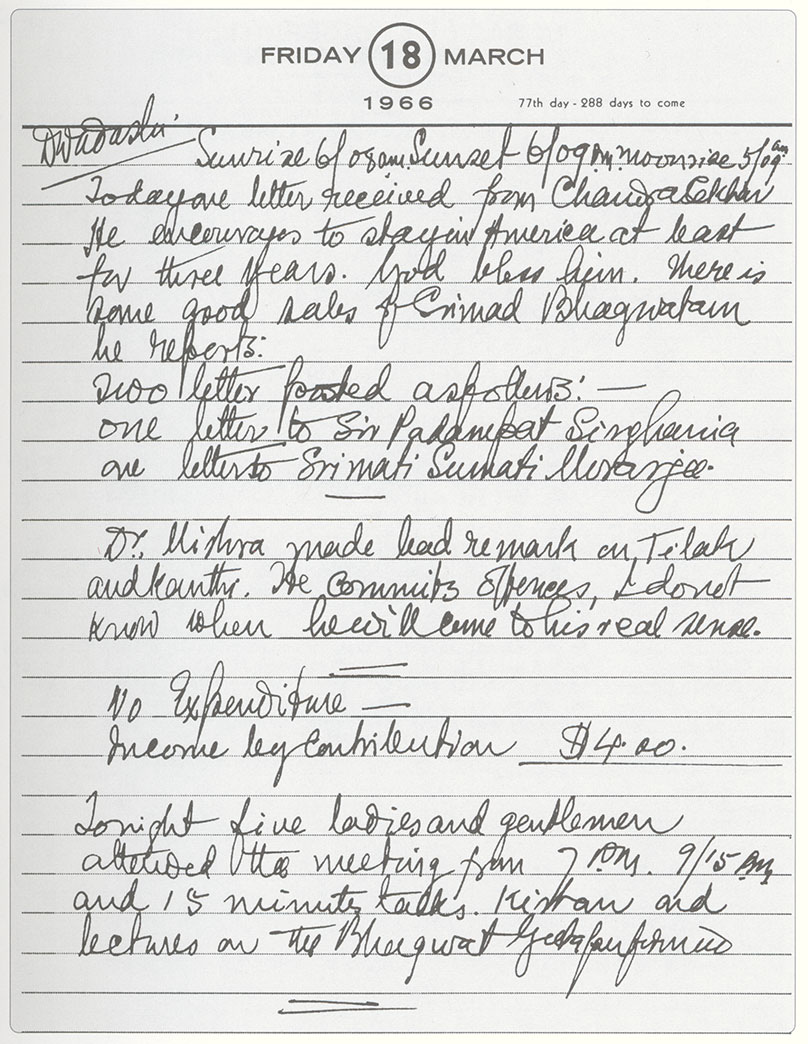 FRIDAY 18 MARCH
1966 77th day - 288 days to come
Dwadashi
Sunrise 6/08 am. Sunset 6/09 P.M. moonrise 5/09 am
Today one letter received from Chandra Sekhar
He encourages to stay in America at least
for three years. God bless him. There is
some good sales of Srimad Bhagwatam
he reports.
Two letter posted as follows: —
one letter to Sir Padampat Singhania
one letter to Srimati Sumati Morarjee.
Dr. Mishra made bad remark on Tilak
and kanthi. He commits offences, I do not
know when he will come to his real sense.
No Expenditure —
Income by contribution $4.00.
Tonight five ladies and gentlemen
attended the meeting from 7 P.M. 9/15 P.M.
and 15 minutes talks. Kirtan and
lectures on the Bhagwat Geeta performed